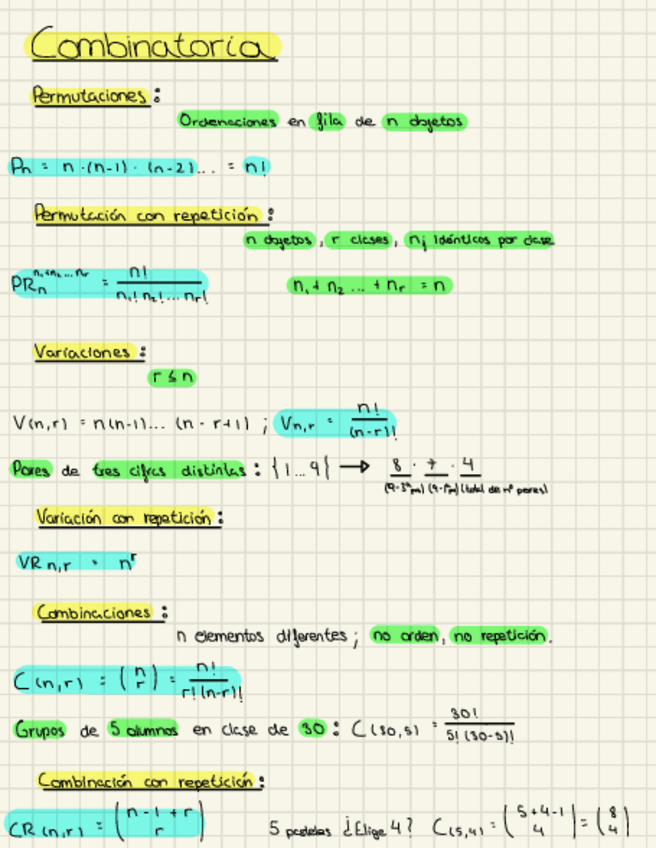 Combinatoria
Permutaciones:
Ordenaciones en fila de n objetos
Pn = n · (n-1) · (n-2)... = n!
Permutación con repetición:
n objetos, r clases, ni idénticos por clase
PRn^n1,n2,...nr = n! / n1! n2! ... nr!     n1 + n2 ... + nr = n
Variaciones:
r ≤ n
V(n,r) = n(n-1)... (n-r+1) ; Vn,r = n! / (n-r)!
Pares de tres cifras distintas: {1...9} → 8 · 7 · 4
(total de nº pares)
Variación con repetición:
VR n,r = n^r
Combinaciones:
n elementos diferentes; no orden, no repetición.
C(n,r) = (n r) = n! / r!(n-r)!
Grupos de 5 alumnos en clase de 30: C(30,5) = 30! / 5!(30-5)!
Combinación con repetición:
CR(n,r) = (n-1+r r)     5 pasteles ¿Elige 4? C(5,4) = (5+4-1 4) = (8 4)